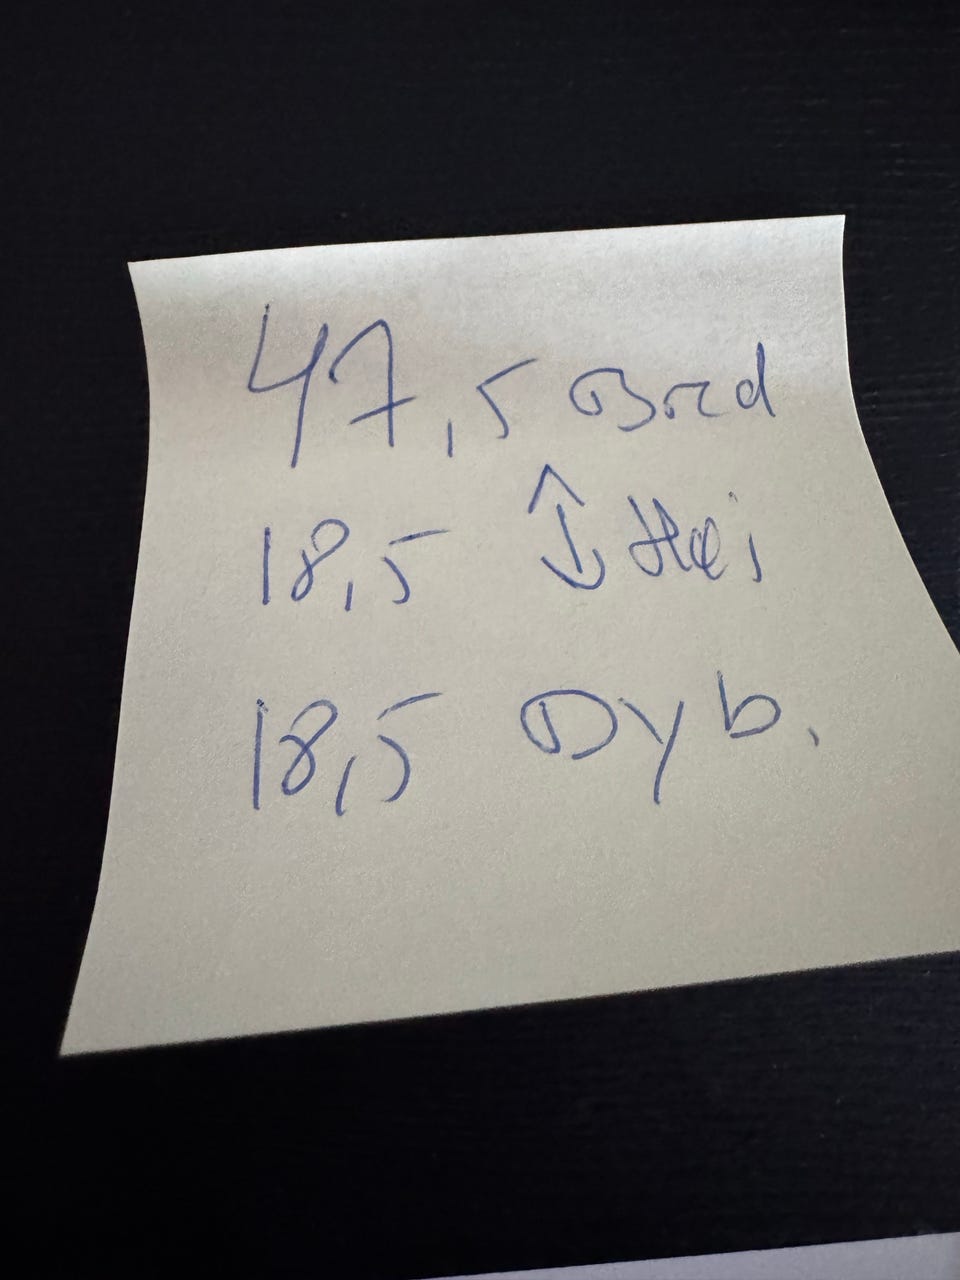 47,5 Bred
18,5 ↕ Høj
18,5 Dyb.